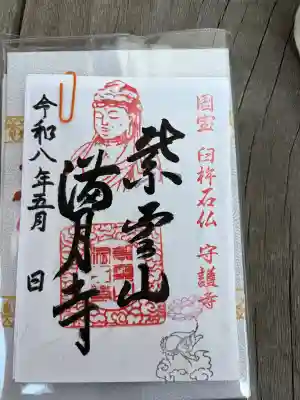 国宝 臼杵石仏 守護寺
紫雲山
満月寺
令和八年五月 日